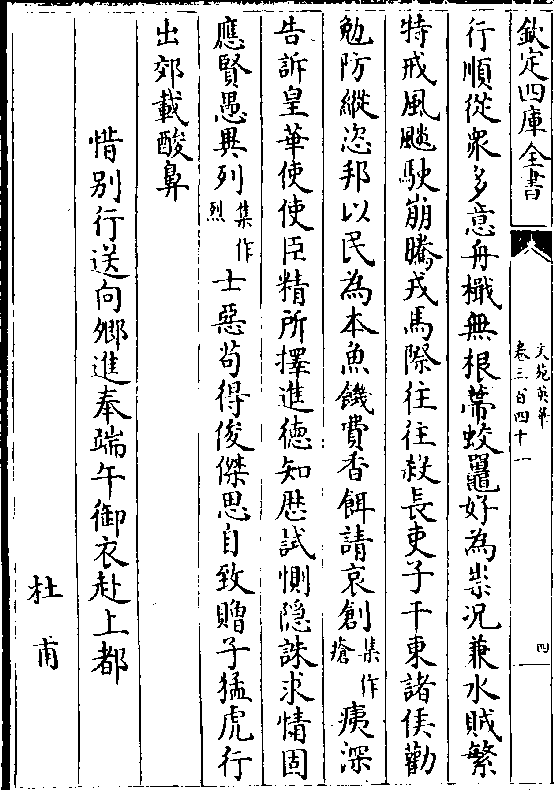 欽定四庫全書
文苑英華
卷三百四十一
四
行順從衆多意舟檝無根蔕蛟鼉好為祟況兼水賊繁
特戒風飈駛崩騰戎馬際往往殺長吏子干東諸侯勸
勉防縱恣邦以民為本魚饑費香餌請哀創集作瘡痍深
告訴皇華使使臣精所擇進德知歴試惻隠誅求情固
應賢愚異列集作烈士惡苟得俊傑思自致贈子猛虎行
出郊載酸鼻
惜别行送向鄉進奉端午御衣赴上都
杜甫